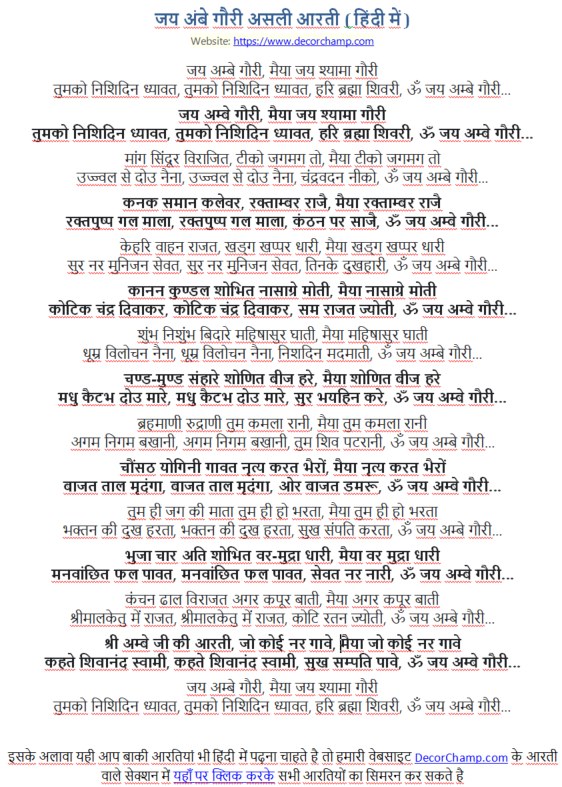 जय अंबे गौरी असली आरती ( हिंदी में )
Website: https://www.decorchamp.com
जय अम्बे गौरी, मैया जय श्यामा गौरी
तुमको निशिदिन ध्यावत, तुमको निशिदिन ध्यावत, हरि ब्रह्मा शिवरी, ॐ जय अम्बे गौरी...
जय अम्वे गौरी, मैया जय श्यामा गौरी
तुमको निशिदिन ध्यावत, तुमको निशिदिन ध्यावत, हरि ब्रह्मा शिवरी, ॐ जय अम्वे गौरी...
मांग सिंदूर विराजित, टीको जगमग तो, मैया टीको जगमग तो
उज्ज्वल से दोउ नैना, उज्ज्वल से दोउ नैना, चंद्रवदन नीको, ॐ जय अम्बे गौरी...
कनक समान कलेवर, रक्ताम्वर राजै, मैया रक्ताम्वर राजै
रक्तपुष्प गल माला, रक्तपुष्प गल माला, कंठन पर साजै, ॐ जय अम्वे गौरी...
केहरि वाहन राजत, खड्ग खप्पर धारी, मैया खड्ग खप्पर धारी
सुर नर मुनिजन सेवत, सुर नर मुनिजन सेवत, तिनके दुखहारी, ॐ जय अम्बे गौरी...
कानन कुण्डल शोभित नासाग्रे मोती, मैया नासाग्रे मोती
कोटिक चंद्र दिवाकर, कोटिक चंद्र दिवाकर, सम राजत ज्योती, ॐ जय अम्वे गौरी...
शुंभ निशुंभ बिदारे महिषासुर घाती, मैया महिषासुर घाती
धूम्र विलोचन नैना, धूम्र विलोचन नैना, निशदिन मदमाती, ॐ जय अम्बे गौरी...
चण्ड-मुण्ड संहारे शोणित वीज हरे, मैया शोणित वीज हरे
मधु कैटभ दोउ मारे, मधु कैटभ दोउ मारे, सुर भयहिन करे, ॐ जय अम्वे गौरी...
ब्रहमाणी रुद्राणी तुम कमला रानी, मैया तुम कमला रानी
अगम निगम बखानी, अगम निगम बखानी, तुम शिव पटरानी, ॐ जय अम्बे गौरी...
चौंसठ योगिनी गावत नृत्य करत भैरों, मैया नृत्य करत भैरों
वाजत ताल मृदंगा, वाजत ताल मृदंगा, ओर वाजत डमरू, ॐ जय अम्वे गौरी...
तुम ही जग की माता तुम ही हो भरता, मैया तुम ही हो भरता
भक्तन की दुख हरता, भक्तन की दुख हरता, सुख संपति करता, ॐ जय अम्बे गौरी...
भुजा चार अति शोभित वर-मुद्रा धारी, मैया वर मुद्रा धारी
मनवांछित फल पावत, मनवांछित फल पावत, सेवत नर नारी, ॐ जय अम्वे गौरी...
कंचन ढाल विराजत अगर कपूर बाती, मैया अगर कपूर बाती
श्रीमालकेतु में राजत, श्रीमालकेतु में राजत, कोटि रतन ज्योती, ॐ जय अम्बे गौरी...
श्री अम्वे जी की आरती, जो कोई नर गावे, मैया जो कोई नर गावे
कहते शिवानंद स्वामी, कहते शिवानंद स्वामी, सुख सम्पति पावे, ॐ जय अम्वे गौरी...
जय अम्बे गौरी, मैया जय श्यामा गौरी
तुमको निशिदिन ध्यावत, तुमको निशिदिन ध्यावत, हरि ब्रह्मा शिवरी, ॐ जय अम्बे गौरी...
इसके अलावा यही आप बाकी आरतियां भी हिंदी में पढ़ना चाहते है तो हमारी वेबसाइट DecorChamp.com के आरती
वाले सेक्शन में यहाँ पर क्लिक करके सभी आरतियों का सिमरन कर सकते है